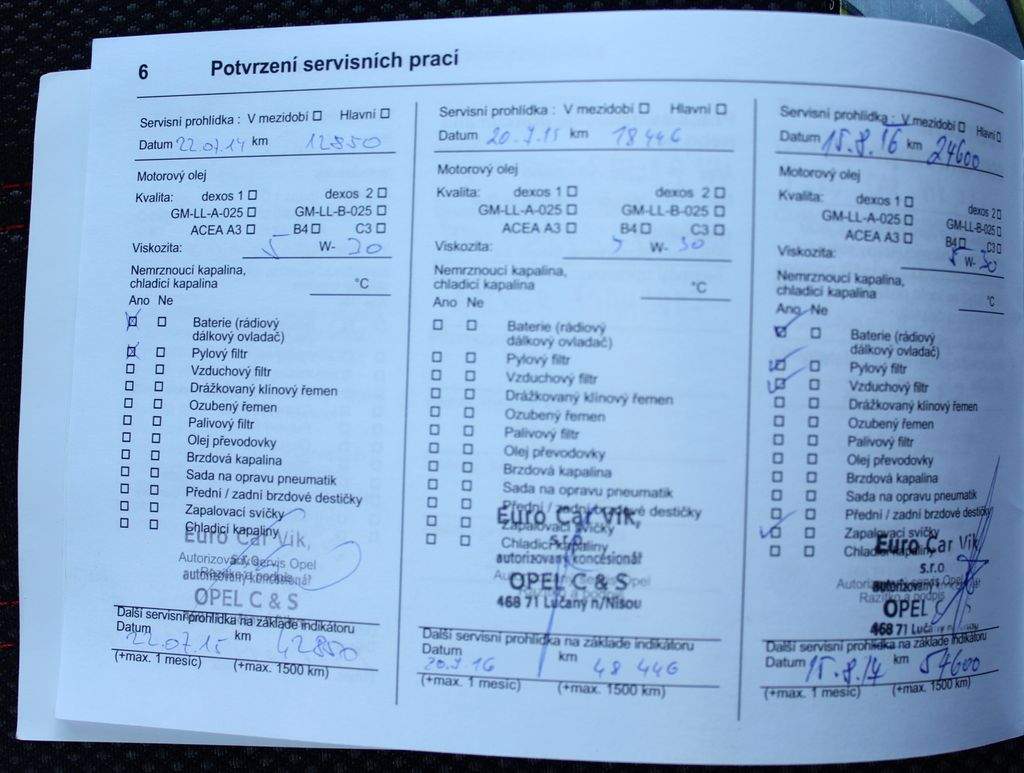 6 Potvrzení servisních prací
Servisní prohlídka : V mezidobí Hlavní
Datum 22.07.14 km 12850
Motorový olej
Kvalita: dexos 1 dexos 2
GM-LL-A-025 GM-LL-B-025
ACEA A3 B4 C3
Viskozita: 5 W- 30
Nemrznoucí kapalina,
chladicí kapalina °C
Ano Ne
Baterie (rádiový
dálkový ovladač)
Pylový filtr
Vzduchový filtr
Drážkovaný klínový řemen
Ozubený řemen
Palivový filtr
Olej převodovky
Brzdová kapalina
Sada na opravu pneumatik
Přední / zadní brzdové destičky
Zapalovací svíčky
Chladicí kapaliny
Euro Car Vik,
s.r.o
Autorizovaný servis Opel
autorizovaný koncesionář
Razítko a podpis
OPEL C & S
Další servisní prohlídka na základe indikátoru
Datum 22.07.15 km 42850
(+max. 1 mesic) (+max. 1500 km)
Servisní prohlídka : V mezidobí Hlavní
Datum 20.7.15 km 18446
Motorový olej
Kvalita: dexos 1 dexos 2
GM-LL-A-025 GM-LL-B-025
ACEA A3 B4 C3
Viskozita: 5 W- 30
Nemrznoucí kapalina,
chladicí kapalina °C
Ano Ne
Baterie (rádiový
dálkový ovladač)
Pylový filtr
Vzduchový filtr
Drážkovaný klínový řemen
Ozubený řemen
Palivový filtr
Olej převodovky
Brzdová kapalina
Sada na opravu pneumatik
Přední / zadní brzdové destičky
Euro Car Vik,
Zapalovací svíčky
s.r.o
Chladicí kapaliny
autorizovaný koncesionář
OPEL C & S
468 71 Lučany n/Nisou
Další servisní prohlídka na základe indikátoru
Datum 20.7.16 km 48 446
(+max. 1 mesic) (+max. 1500 km)
Servisní prohlídka : V mezidobí Hlavní
Datum 15.8.16 km 24600
Motorový olej
Kvalita: dexos 1 dexos 2
GM-LL-A-025 GM-LL-B-025
ACEA A3 B4 C3
Viskozita: 5 W- 30
Nemrznoucí kapalina,
chladicí kapalina °C
Ano Ne
Baterie (rádiový
dálkový ovladač)
Pylový filtr
Vzduchový filtr
Drážkovaný klínový řemen
Ozubený řemen
Palivový filtr
Olej převodovky
Brzdová kapalina
Sada na opravu pneumatik
Přední / zadní brzdové destičky
Zapalovací svíčky
Chladicí kapaliny
Euro Car Vik
s.r.o
Autorizovaný servis Opel
autorizovaný
Razítko a podpis
OPEL C
468 71 Lučany n/Nisou
Další servisní prohlídka na základe indikátoru
Datum 15.8.17 km 54600
(+max. 1 mesic) (+max. 1500 km)